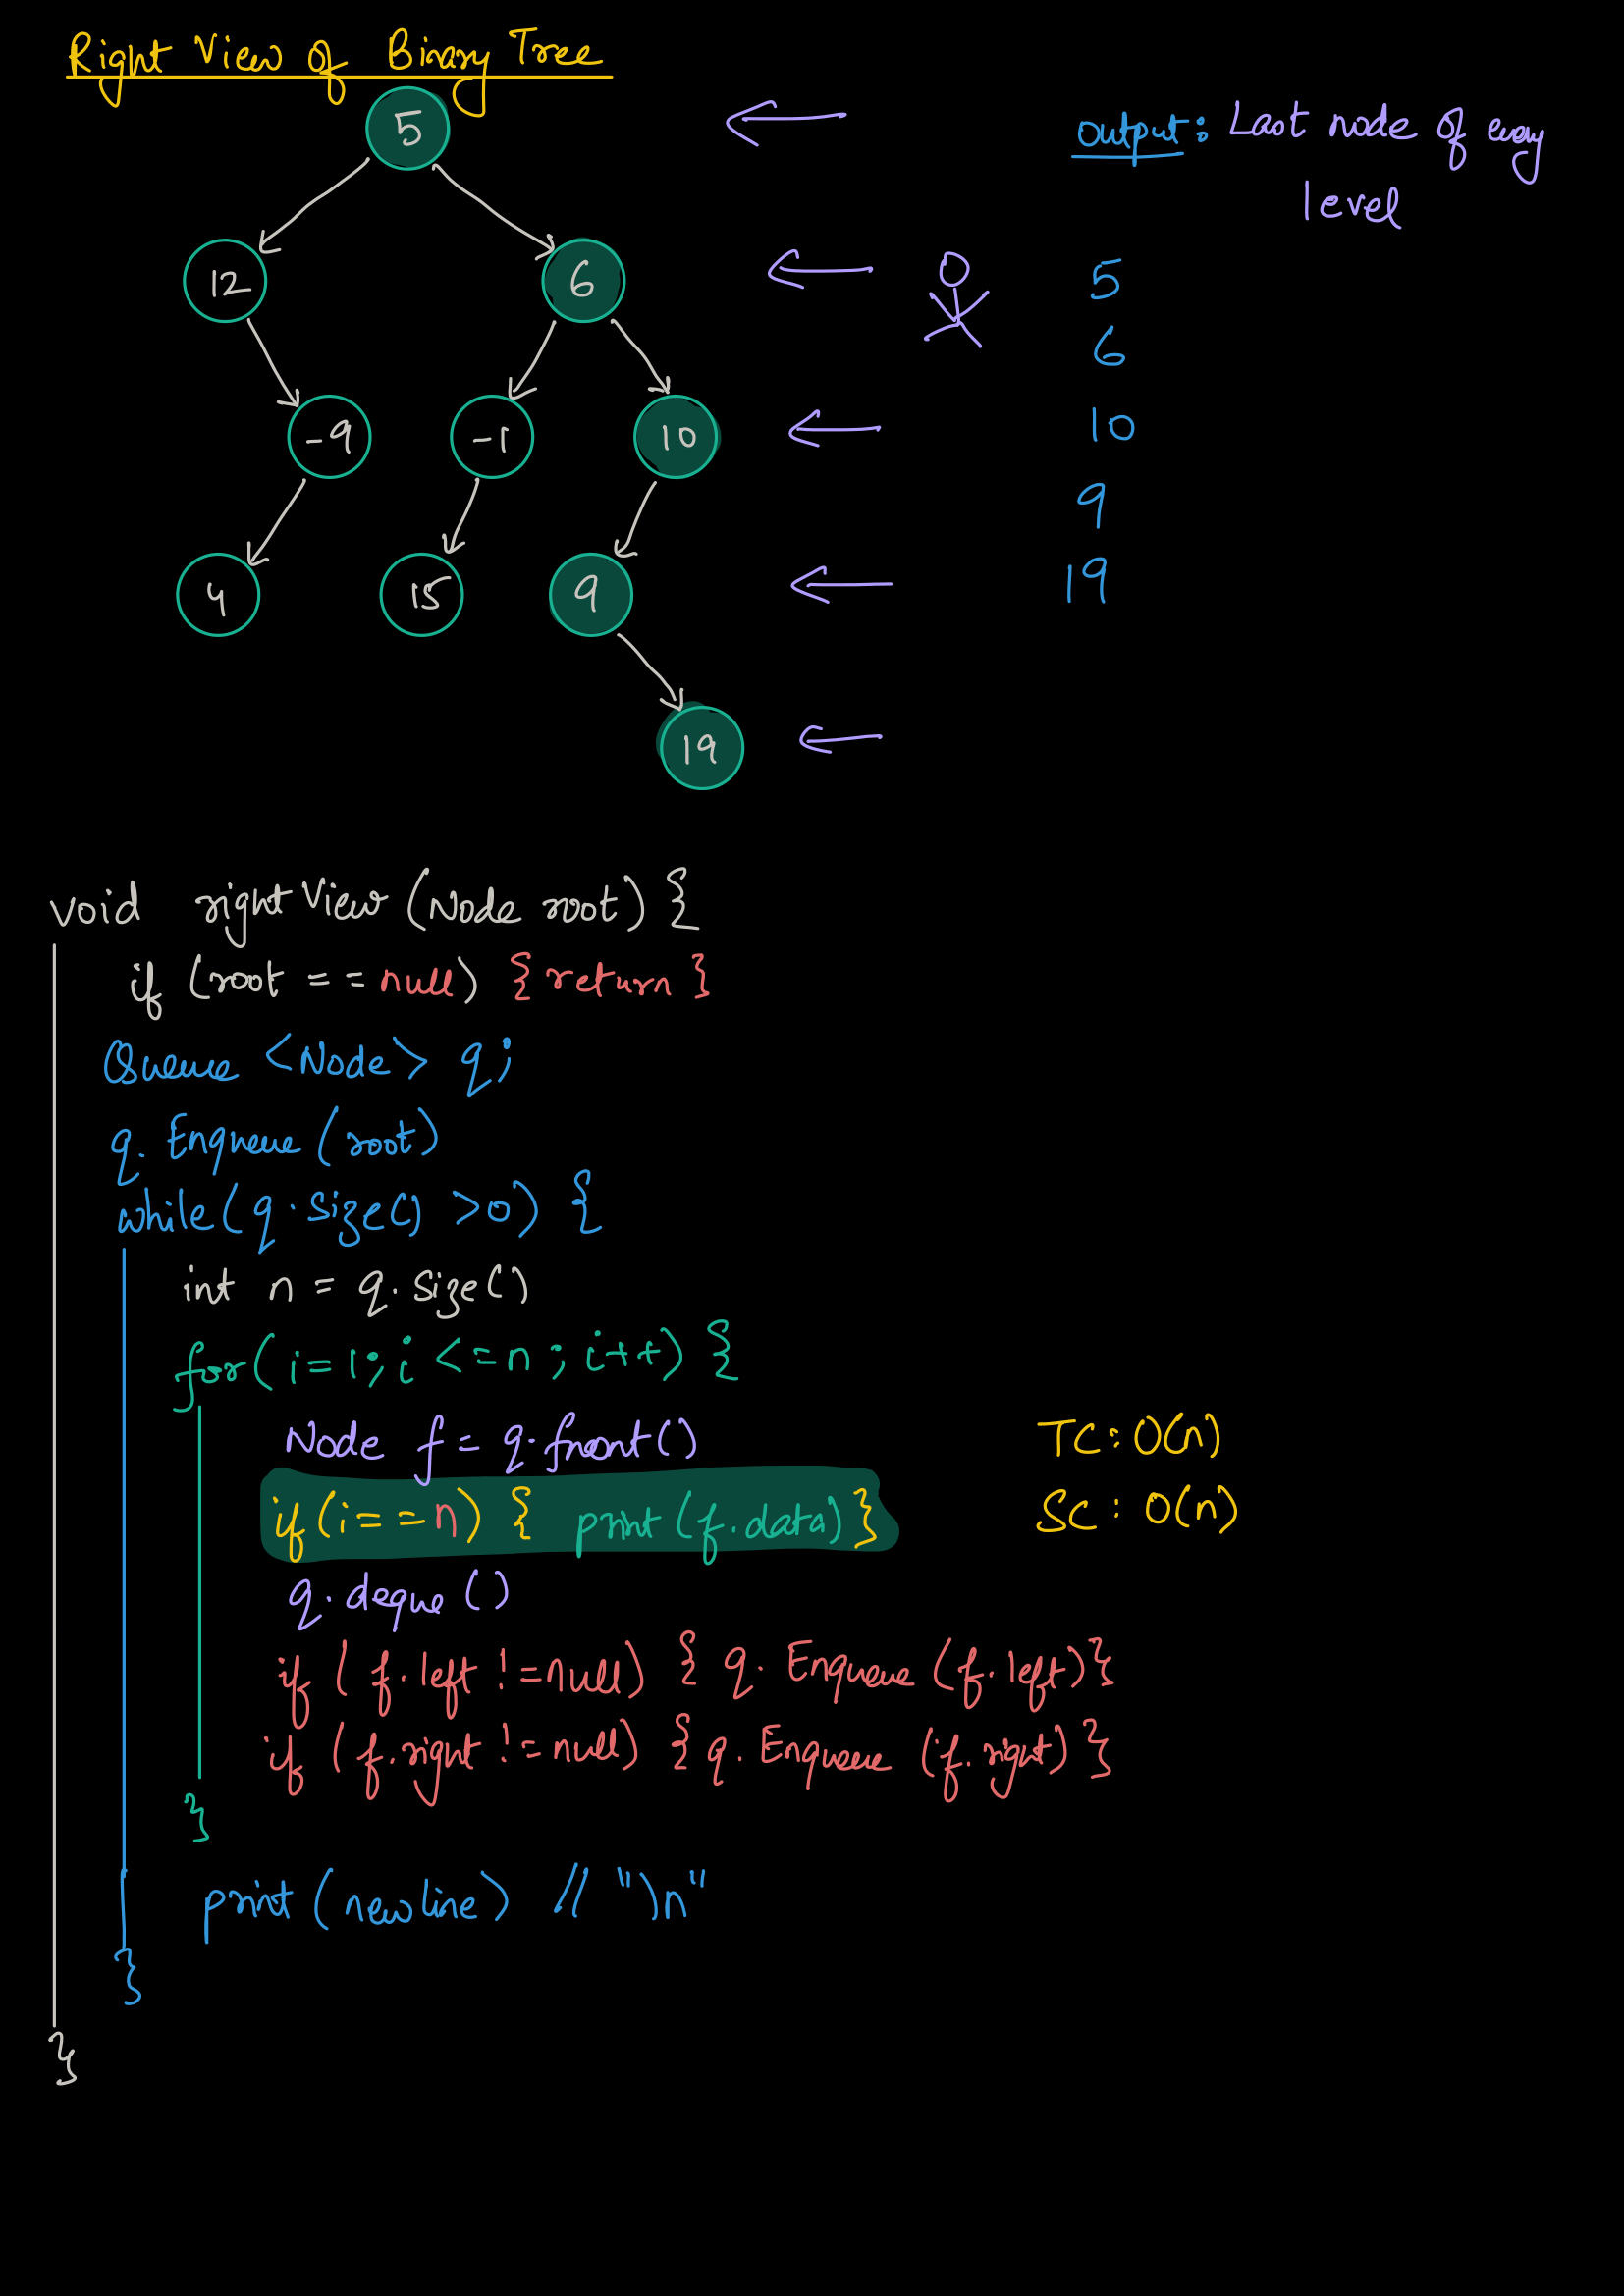 Right View of Binary Tree
5
12 6
-9 -1 10
4 15 9
19
output: Last node of every
level
5
6
10
9
19
void rightView (Node root) {
if (root == null) { return }
Queue <Node> q;
q. Enqueue (root)
while( q.size() >0) {
int n = q.size()
for( i=1; i <=n ; i++) {
Node f = q.front()
if (i==n) { print (f.data) }
q.deque ()
if ( f.left !=null) { q. Enqueue (f.left)}
if ( f.right != null) { q. Enqueue (f.right) }
}
print (newline) // "\n"
}
}
TC: O(n)
SC: O(n)